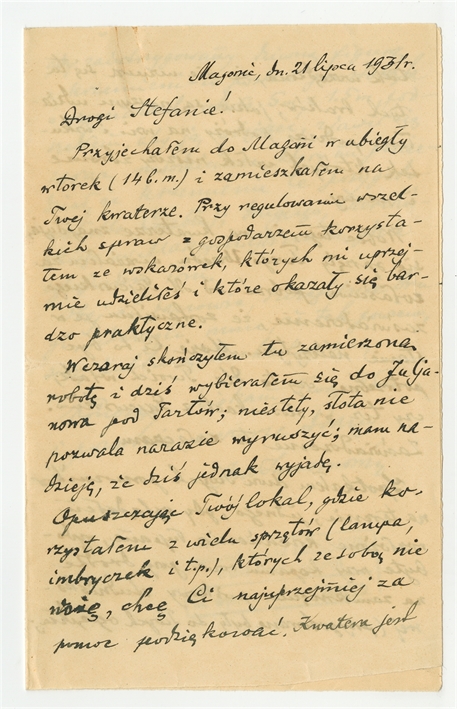 Magonie, dn. 21 lipca 1931r.
Drogi Stefanie!
Przyjechałem do Magoni w ubiegły
wtorek (14 b.m.) i zamieszkałem na
Twej kwaterze. Przy regulowaniu wszel-
kich spraw z gospodarzem korzysta-
łem ze wskazówek, których mi uprzej-
mie udzieliłeś i które okazały się bar-
dzo praktyczne.
Wczoraj skończyłem tu zamierzoną
robotę i dziś wybierałem się do
nowa pod Tartów; niestety, słota nie
pozwala narazie wyruszyć; mam na-
dzieję, że dziś jednak wyjadę.
Opuszczając Twój lokal, gdzie ko-
rzystałem z wielu sprzętów (lampa,
imbryczek i t.p.), których ze sobą nie
wożę, chcę Ci najuprzejmiej za
pomoc podziękować. Kwatera jest